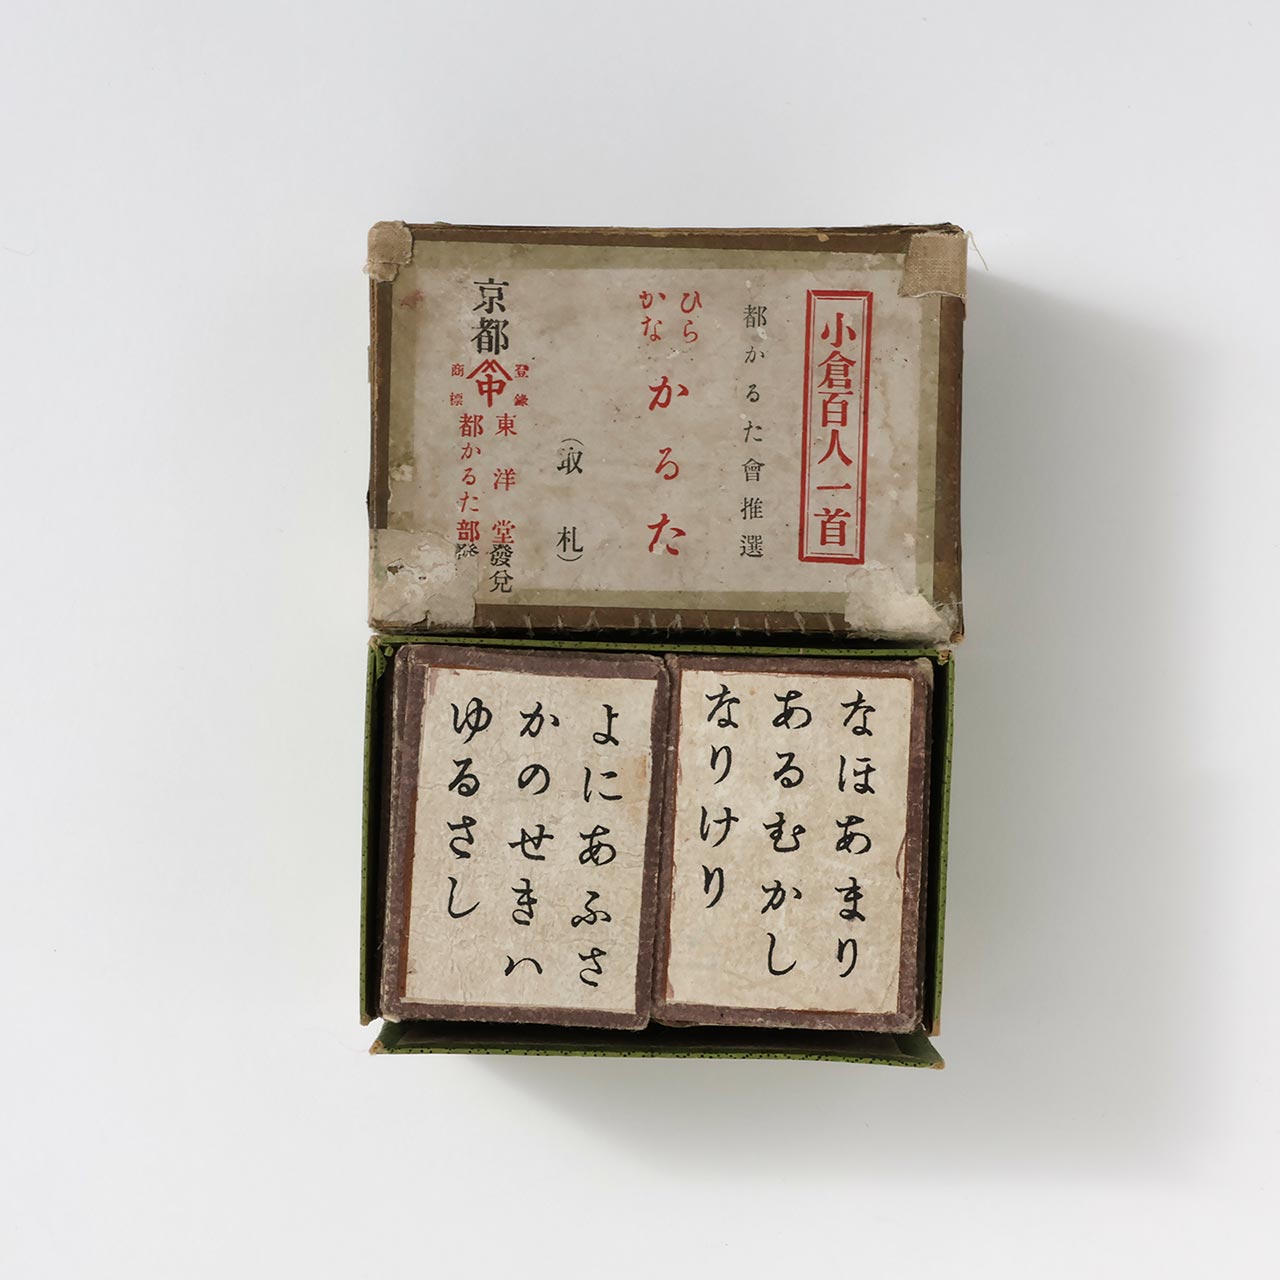 小倉百人一首
都かるた會推選
ひら
かな
かるた
（取札）
京都
登録
商標
中
東洋堂
都かるた部
發兌
なほあまり
あるむかし
なりけり
よにあふさ
かのせきハ
ゆるさし